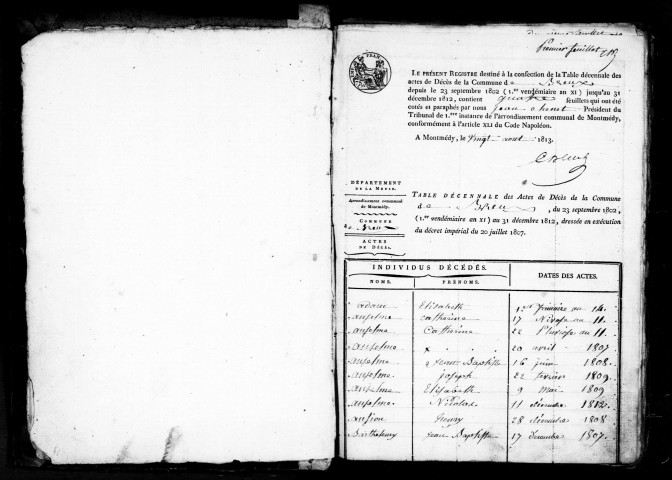 Premier feuillet
LE PRÉSENT REGISTRE destiné à la confection de la Table décennale des
actes de Décès de la Commune de Breux
depuis le 23 septembre 1802 (1.er vendémiaire an XI) jusqu'au 31
décembre 1812, contient quatre feuillets qui ont été
cotés et paraphés par nous Jean Président du
Tribunal de 1.ère instance de l'arrondissement communal de Montmédy,
conformément à l'article XLI du Code Napoléon.
A Montmédy, le vingt août 1813.
DÉPARTEMENT
DE LA MEUSE.
Arrondissement communal
de Montmédy.
COMMUNE
de Breux
ACTES
DE DÉCÈS.
TABLE DÉCENNALE des Actes de Décès de la Commune
de Breux, du 23 septembre 1802,
(1.er vendémiaire an XI) au 31 décembre 1812, dressée en exécution
du décret impérial du 20 juillet 1807.
INDIVIDUS DÉCÉDÉS. DATES DES ACTES.
NOMS. PRENOMS.
adam Elisabeth frimaire an 14.
anselme catherine 17 Nivose an 11.
anselme Catherine 22 Pluviose an 11.
anselme x 20 avril 1807.
anselme Jean Baptiste 16 juin 1808.
anselme joseph 22 fevrier 1809.
anselme Elisabeth 9 mai 1809
anselme Nicolas 11 décembre 1812.
ansion henry 28 décembre 1808
Barthelemy jean Baptiste 17 decembre 1807.